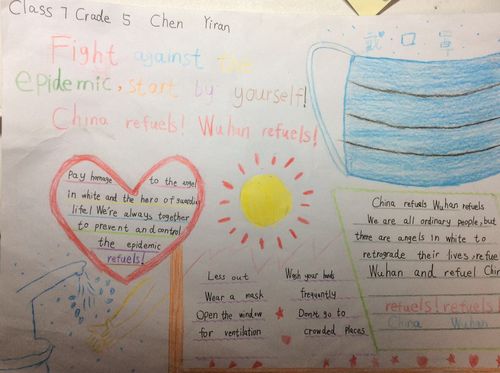 Class 7 Grade 5 Chen Yiran
Fight against the
epidemic, start by yourself!
China refuels! Wuhan refuels!
戴 口 罩
Pay homage to the angel
in white and the hero of guardian
life! We're always together
to prevent and control
the epidemic
refuels!
Less out
Wear a mask
Open the window
for ventilation
Wash your hands
frequently
Don't go to
crowded places
China refuels Wuhan refuels
We are all ordinary people, but
there are angels in white to
retrograde their lives, refue
Wuhan and refuel Chin
refuels! refuels!
China Wuhan